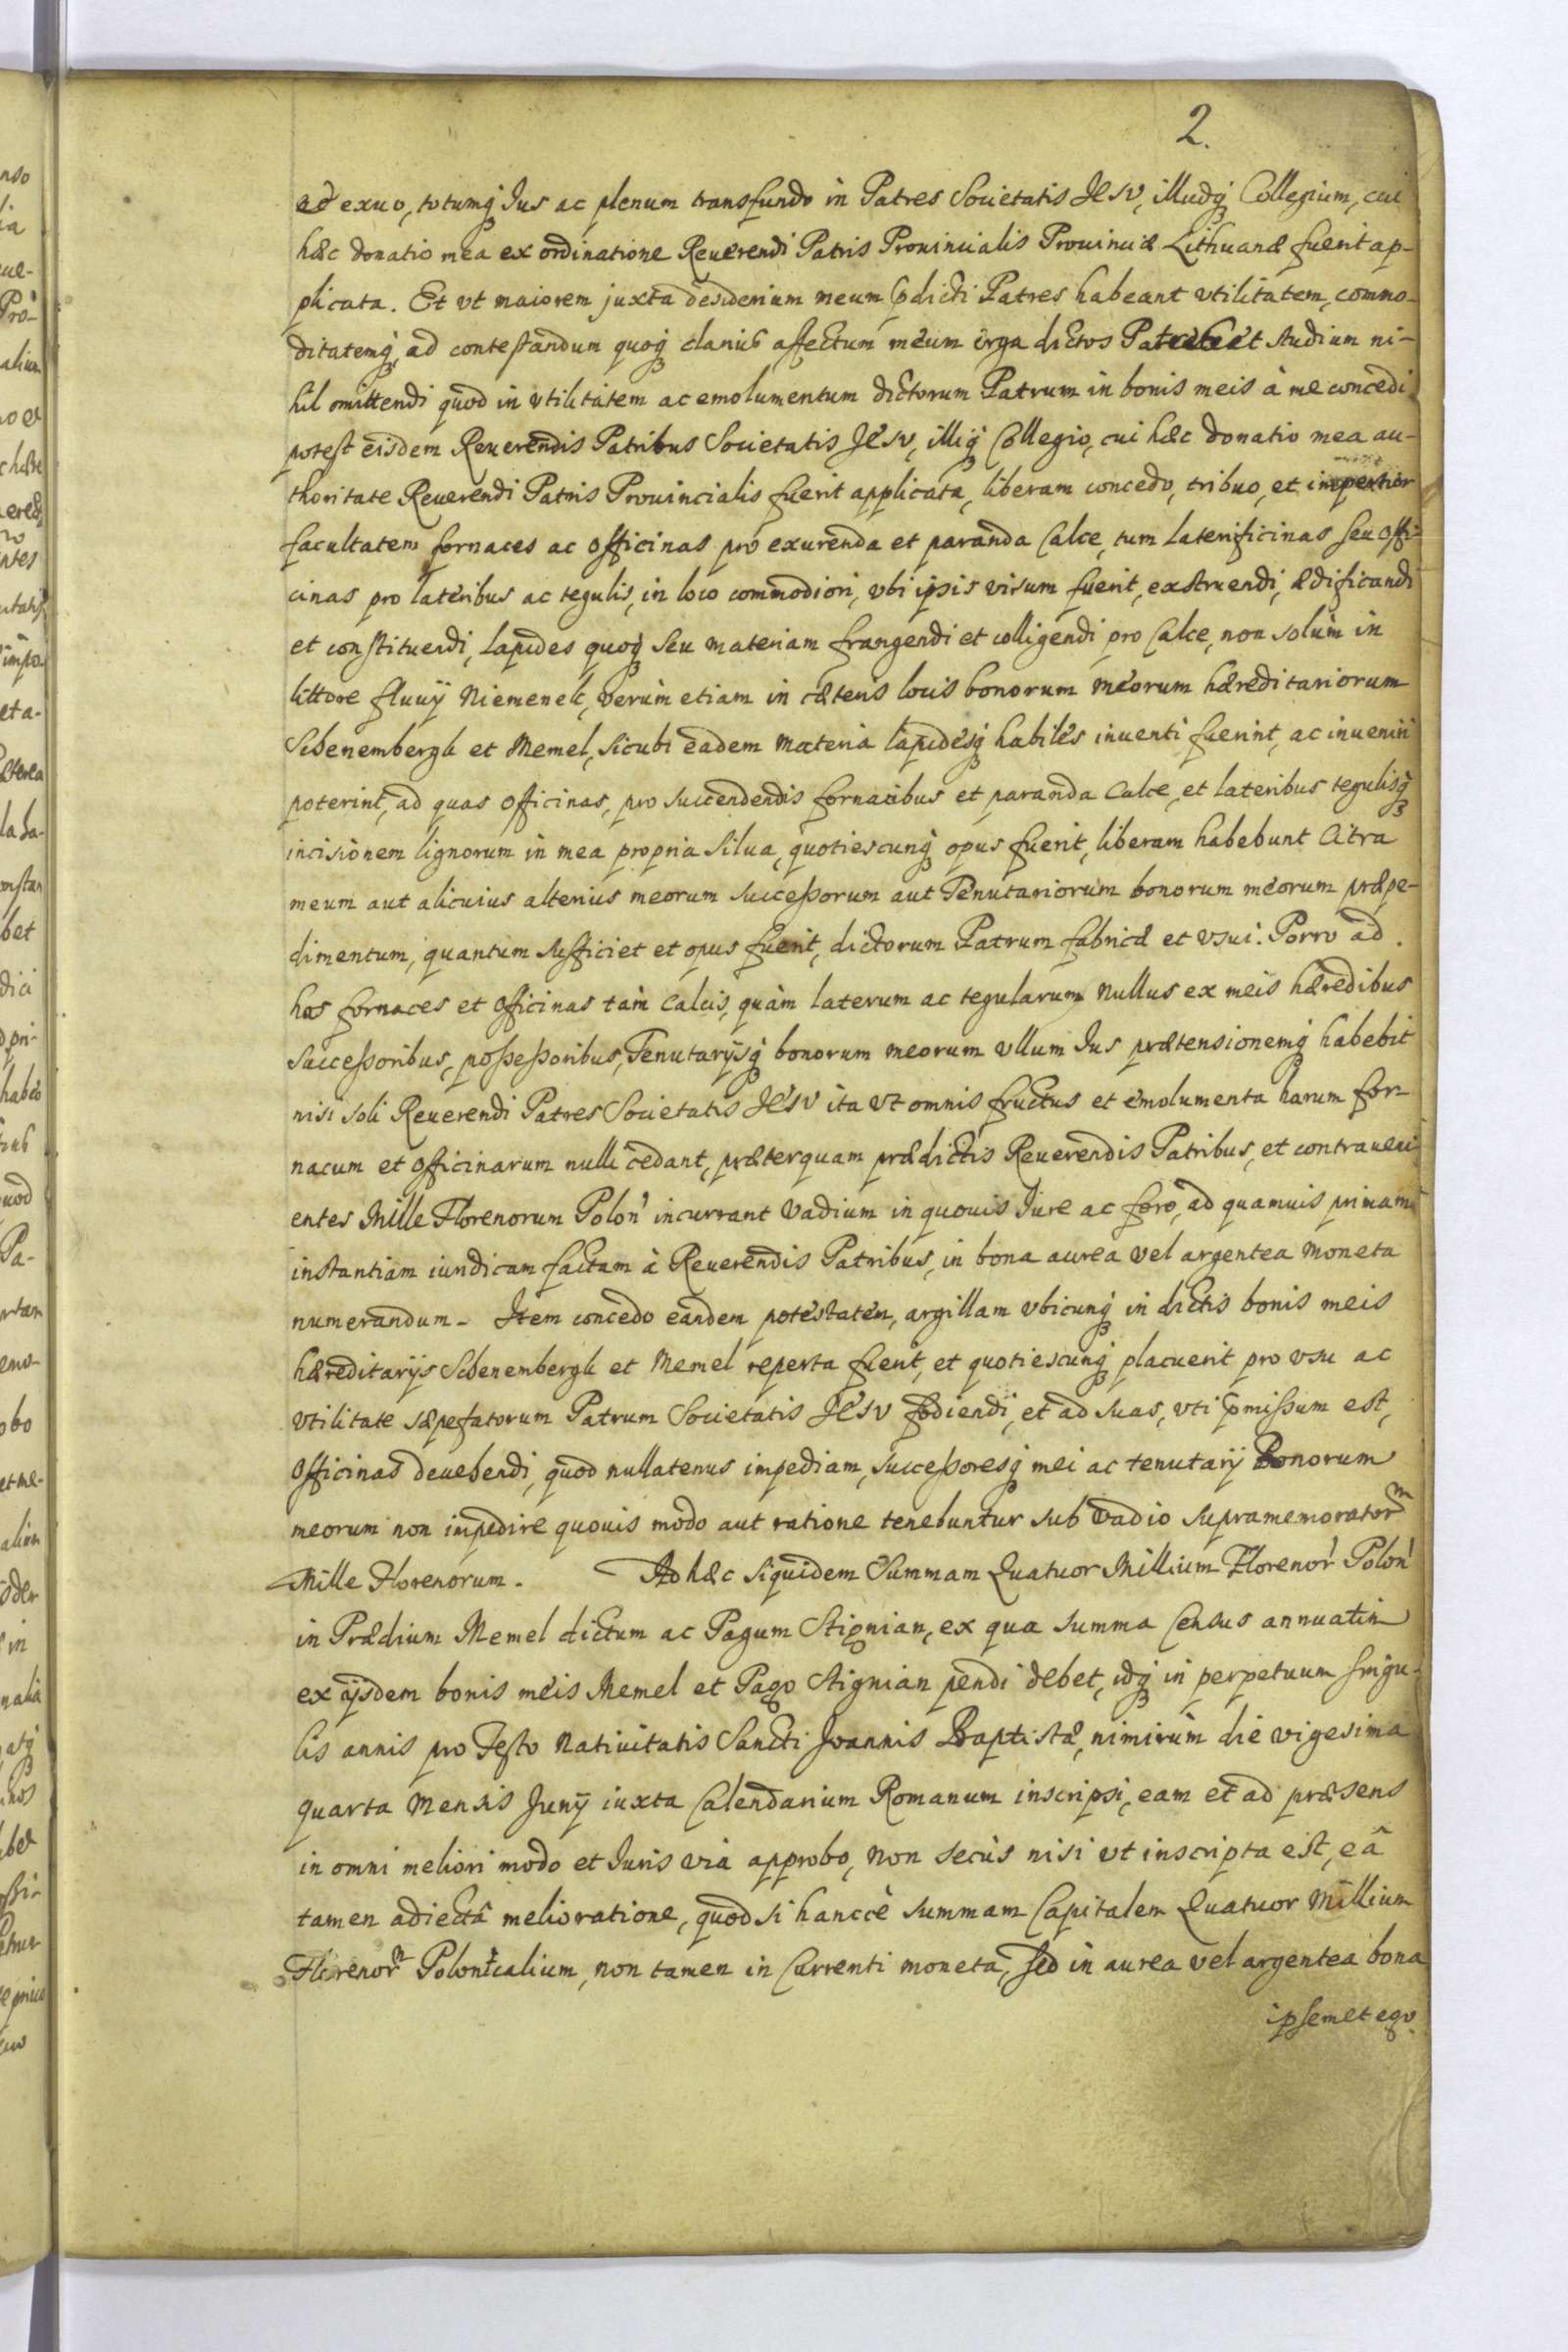 2.
ac exuo, totumq̃ Jus ac plenum transfundo in Patres Societatis JESV, illudq̃ Collegium, cui
hæc donatio mea ex ordinatione Reuerendi Patris Prouincialis Prouinciæ Lithuanæ fuerit ap-
plicata. Et vt maiorem juxta desiderium meum p̃dicti Patres habeant vtilitatem, commo-
ditatemq̃, ad contestandum quoq̃ clariùs affectum meum erga dictos Patres et studium ni-
hil omittendi quod in vtilitatem ac emolumentum dictorum Patrum in bonis meis à me concedi
potest eisdem Reuerendis Patribus Societatis JESV, illiq̃ Collegio, cui hæc donatio mea au-
thoritate Reuerendi Patris Prouincialis fuerit applicata, liberam concedo, tribuo, et impertior
facultatem fornaces ac officinas pro exurenda et paranda Calce, tum laterificinas seu offi-
cinas pro lateribus ac tegulis, in loco commodiori, vbi ipsis visum fuerit, exstruendi, ædificandi
et constituendi, Lapides quoq̃ seu materiam frangendi et colligendi pro Calce, non solùm in
littore fluuij Niemenek, verùm etiam in cæteris locis bonorum meorum hæreditariorum
Schenembergk et Memel, sicubi eadem materia lapidesq̃ habiles inuenti fuerint, ac inueniri
poterint, ad quas officinas, pro succendendis fornacibus et paranda Calce, et lateribus tegulisq̃
incisionem lignorum in mea propria Silua, quotiescunq̃ opus fuerit, liberam habebunt Citra
meum aut alicuius alterius meorum successorum aut Tenutariorum bonorum meorum præpe-
dimentum, quantum sufficiet et opus fuerit, dictorum Patrum fabricæ et vsui. Porro ad
has fornaces et officinas tàm Calcis, quàm laterum ac tegularum nullus ex meis hæredibus
Successoribus, possessoribus, Tenutarijsq̃ bonorum meorum vllum Jus prætensionemq̃ habebit
nisi soli Reuerendi Patres Societatis JESV ita vt omnis fructus et emolumenta harum for-
nacum et officinarum nulli cedant, præterquam prædictis Reuerendis Patribus, et contraueni
entes Mille Florenorum Polon̓ incurrant vadium in quouis Jure ac foro, ad quamuis primam
instantiam iuridicam factam à Reuerendis Patribus, in bona aurea vel argentea moneta
numerandum. Item concedo eandem potestatem, argillam vbicunq̃ in dictis bonis meis
hæreditarijs Schenembergk et Memel reperta fuerit, et quotiescunq̃ placuerit pro vsu ac
vtilitate sæpefatorum Patrum Societatis JESV fodiendi, et ad suas, vti p̃missum est,
officinas deuehendi, quod nullatenus impediam, successoresq̃ mei ac tenutarij Bonorum
meorum non impedire quouis modo aut ratione tenebuntur sub vadio supramemorator̃m
Mille Florenorum. Ad hæc siquidem Summam Quatuor Millium Florenor̓ Polon̓
in Prædium Memel dictum ac Pagum Stignian, ex qua summa Census annuatim
ex ijsdem bonis meis Memel et Pago Stignian pendi debet, idq̃ in perpetuum singu-
lis annis pro Festo Natiuitatis Sancti Joannis Baptistæ, nimirùm die vigesima
quarta Mensis Junij iuxta Calendarium Romanum inscripsi, eam et ad præsens
in omni meliori modo et Juris via approbo, non secùs nisi vt inscripta est, eâ
tamen adiectâ melioratione, quod si hanccè summam Capitalem Quatuor Millium
Florenor̃ Polonicalium, non tamen in Currenti moneta, sed in aurea vel argentea bona
ipsemet ego